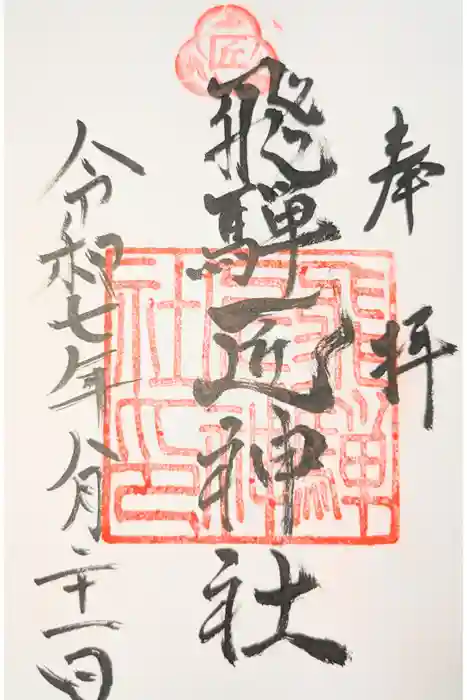 奉拝
匠
飛騨匠神社
飛騨
匠神
社印
令和七年八月二十一日